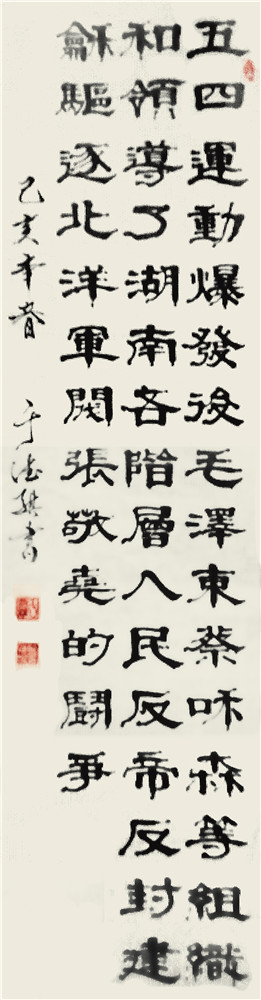 五四運動爆發後毛澤東蔡咊森等組織
和領導了湖南各階層人民反帝反封建
龢驅逐北洋軍閥張敬堯的鬪爭
己亥年春 于德書